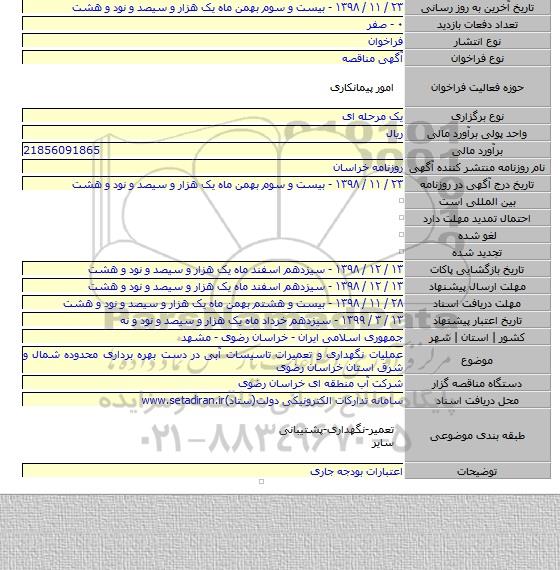 تاریخ آخرین به روز رسانی ۲۳ / ۱۱ / ۱۳۹۸ - بیست و سوم بهمن ماه یک هزار و سیصد و نود و هشت
تعداد دفعات بازدید ۰ - صفر
نوع انتشار فراخوان
نوع فراخوان آگهی مناقصه
حوزه فعالیت فراخوان امور پیمانکاری
نوع برگزاری یک مرحله ای
واحد پولی برآورد مالی ریال
برآورد مالی 21856091865
نام روزنامه منتشر کننده آگهی روزنامه خراسان
تاریخ درج آگهی در روزنامه ۲۳ / ۱۱ / ۱۳۹۸ - بیست و سوم بهمن ماه یک هزار و سیصد و نود و هشت
بین المللی است
احتمال تمدید مهلت دارد
لغو شده
تجدید شده
تاریخ بازگشایی پاکات ۱۳ / ۱۲ / ۱۳۹۸ - سیزدهم اسفند ماه یک هزار و سیصد و نود و هشت
مهلت ارسال پیشنهاد ۱۳ / ۱۲ / ۱۳۹۸ - سیزدهم اسفند ماه یک هزار و سیصد و نود و هشت
مهلت دریافت اسناد ۲۸ / ۱۱ / ۱۳۹۸ - بیست و هشتم بهمن ماه یک هزار و سیصد و نود و هشت
تاریخ اعتبار پیشنهاد ۱۳ / ۳ / ۱۳۹۹ - سیزدهم خرداد ماه یک هزار و سیصد و نود و نه
کشور | استان | شهر جمهوری اسلامی ایران - خراسان رضوی - مشهد
موضوع عملیات نگهداری و تعمیرات تاسیسات آبی در دست بهره برداری محدوده شمال و
شرق استان خراسان رضوی
دستگاه مناقصه گزار شرکت آب منطقه ای خراسان رضوی
محل دریافت اسناد سامانه تدارکات الکترونیکی دولت(ستاد)www.setadiran.ir
طبقه بندی موضوعی تعمیر-نگهداری-پشتیبانی
سایر
توضیحات اعتبارات بودجه جاری
۰۲۱-۸۸۳۴۹۶۷۰-۵